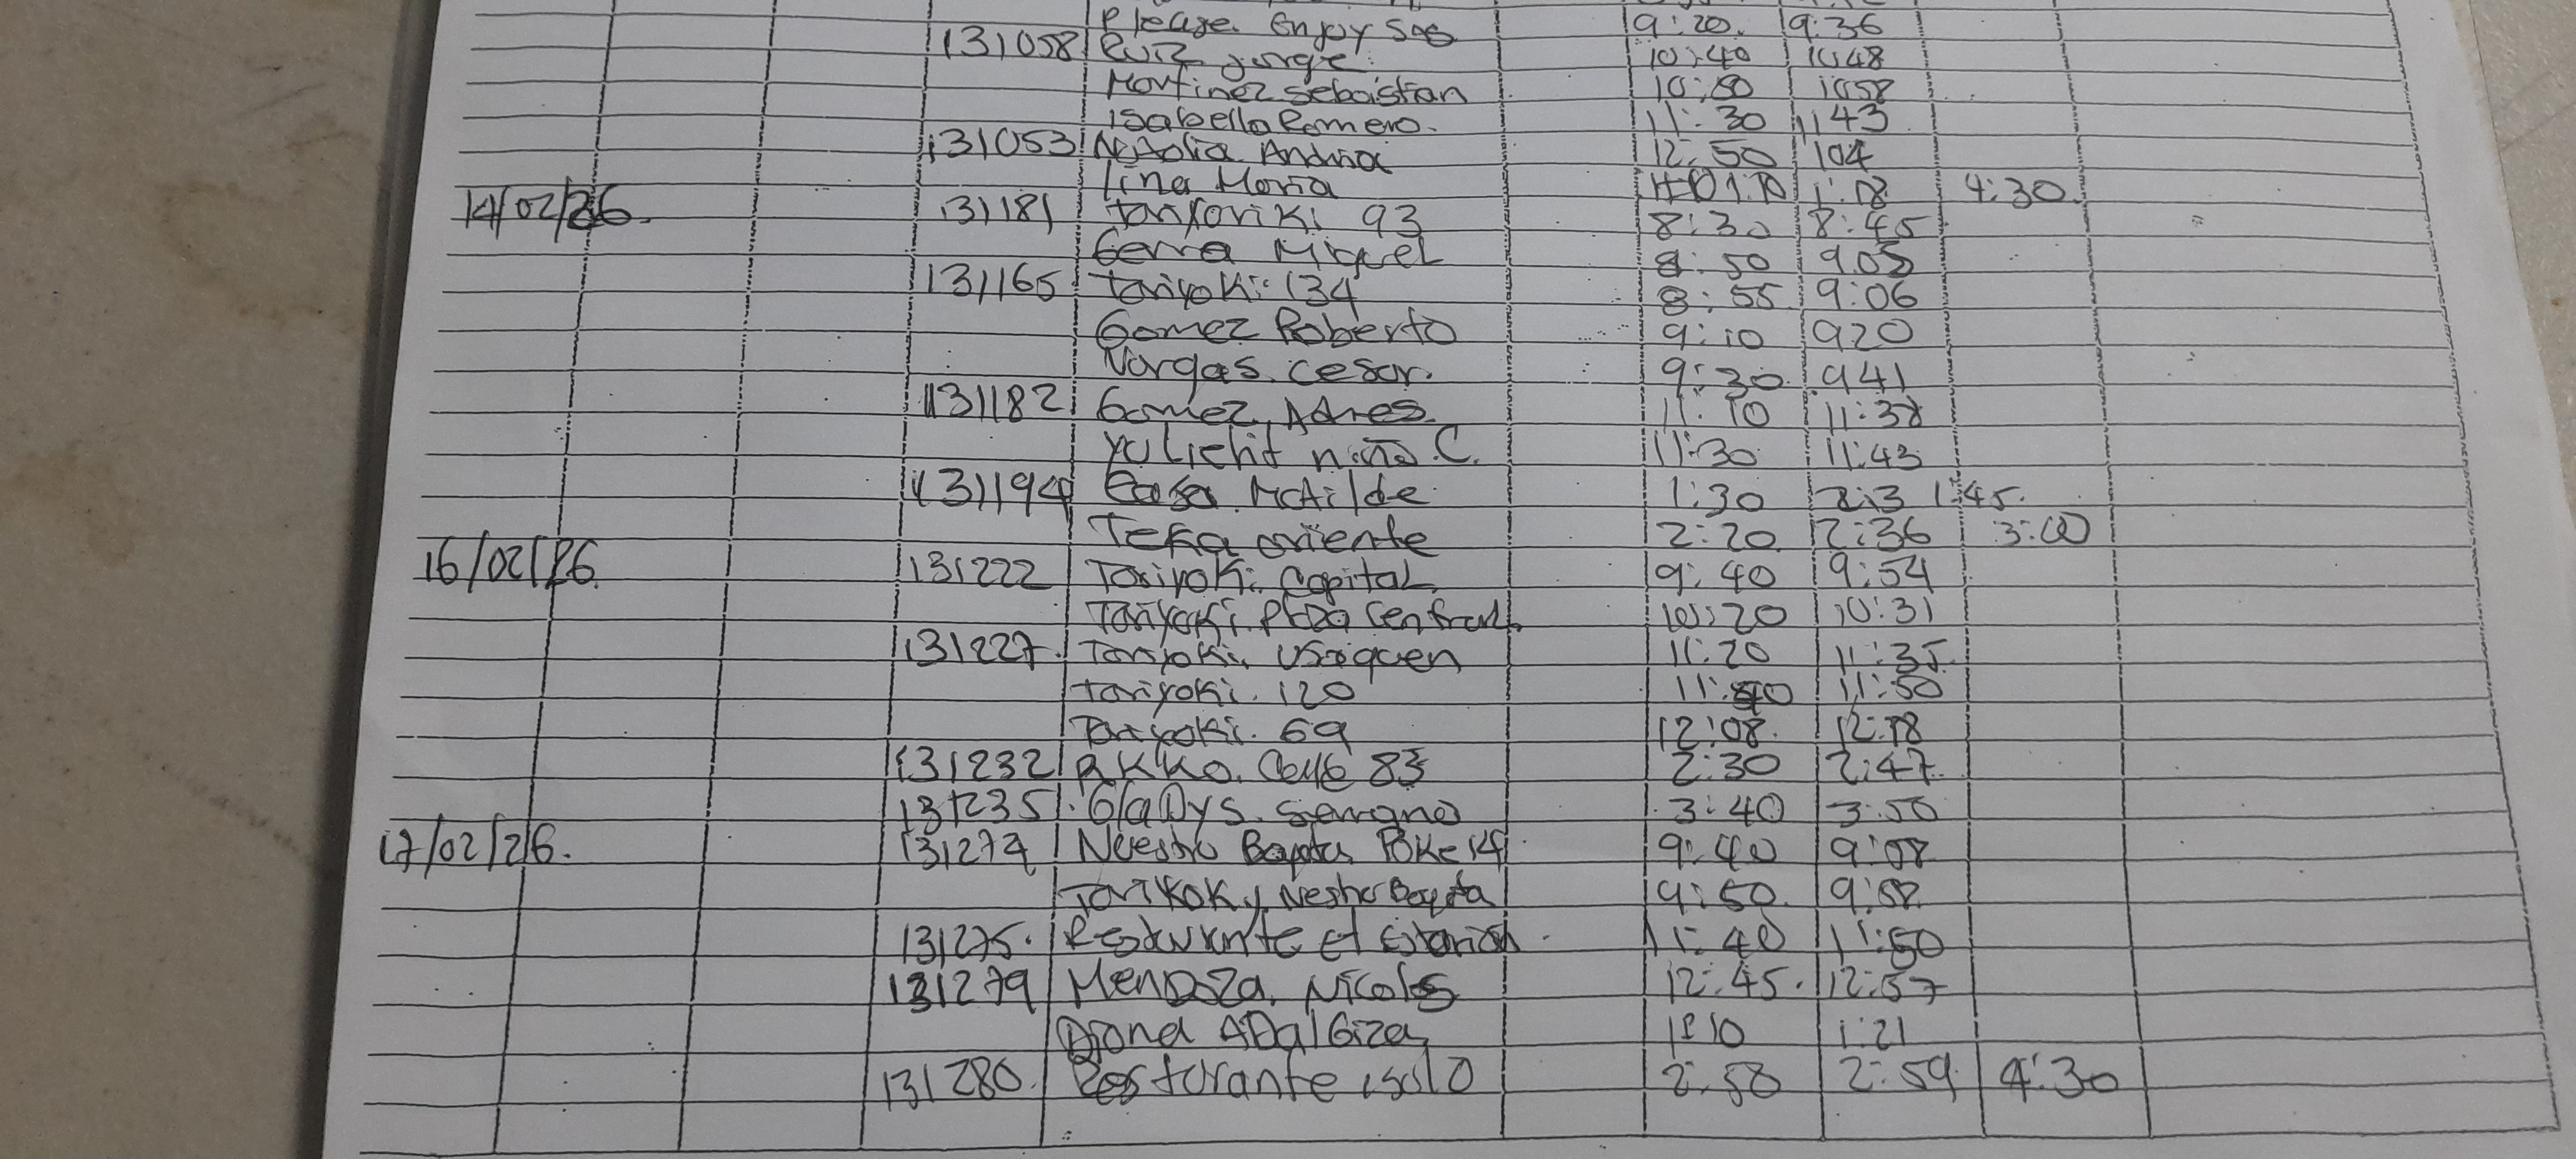 Please Enjoy Sas 9:20. 9:36
131058 Ruiz Jorge. 10:40 10:48
Martinez Sebaistian 10:50 1058
Isabella Romero. 11:30 1143
131053 Natalia Andrea 12:50 104
Lina Maria 1:10 1:18 4:30
14/02/26. 131181 Tariyoriki 93 8:30 8:45
Serra Miguel 8:50 9.05
131165 Tariyoki 134 8:55 9:06
Gomez Roberto 9:10 920
Vargas. Cesar. 9:30 941
131182 Gomez, Adres. 11:10 11:38
Yulieht niño C. 11:30 11:43
131194 Casa Matilde 1:30 1:45.
Teka oriente 2:20 2:36 3:00
16/02/26. 131222 Tariyoki Capital 9:40 9:54
Tariyoki Plaza Central 10:20 10:31
131227. Tariyoki. Usaquen 11:20 11:35
Tariyoki. 120 11:40 11:50
Tariyoki. 69 12:08. 12:18
131232 AKKO. Calle 83 2:30 2:47
131235 Gladys. Serrano 3:40 3:50
17/02/26. 131274 Nuestro Bogota Poke 14 9:40 9:58
Tarikoky Nestro Bogota 9:50. 9:58
131275. Restaurante el Estarion 11:40 11:50
131279 Mendoza. Nicolas 12:45. 12:57
Diana Adalgiza 1:10 1:21
131280. Restorante isolo 2:58 2:59 4:30